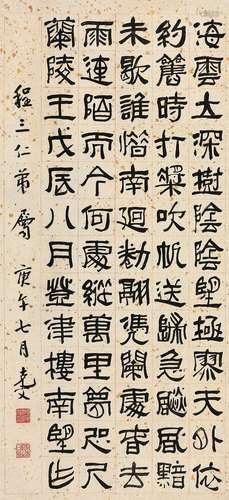 海雲大深樹陰陰望極寥天外依
約舊時打槳吹帆送歸急飈風黯
未歇誰惜南迴勌翮憑闌處杳去
雨連陌而今何處縱萬里夢咫尺
蘭陵王戊辰八月登津樓南望作
程三仁弟屬 庚午七月